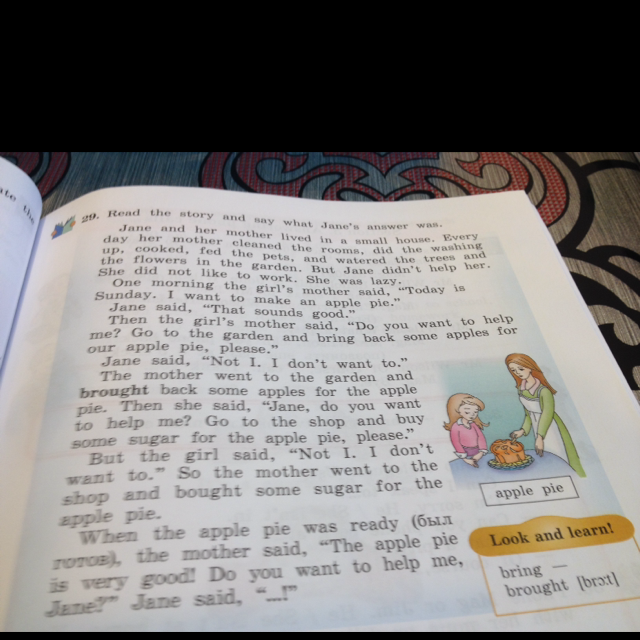 ate the
29. Read the story and say what Jane's answer was.
Jane and her mother lived in a small house. Every
day her mother cleaned the rooms, did the washing
up, cooked, fed the pets, and watered the trees and
the flowers in the garden. But Jane didn't help her.
She did not like to work. She was lazy.
One morning the girl's mother said, "Today is
Sunday. I want to make an apple pie."
Jane said, "That sounds good."
Then the girl's mother said, "Do you want to help
me? Go to the garden and bring back some apples for
our apple pie, please."
Jane said, "Not I. I don't want to."
The mother went to the garden and
brought back some apples for the apple
pie. Then she said, "Jane, do you want
to help me? Go to the shop and buy
some sugar for the apple pie, please."
But the girl said, "Not I. I don't
want to." So the mother went to the
shop and bought some sugar for the
apple pie.
When the apple pie was ready (был
готов), the mother said, "The apple pie
is very good! Do you want to help me,
Jane?" Jane said, "...!"
apple pie
Look and learn!
bring —
brought [brɔːt]